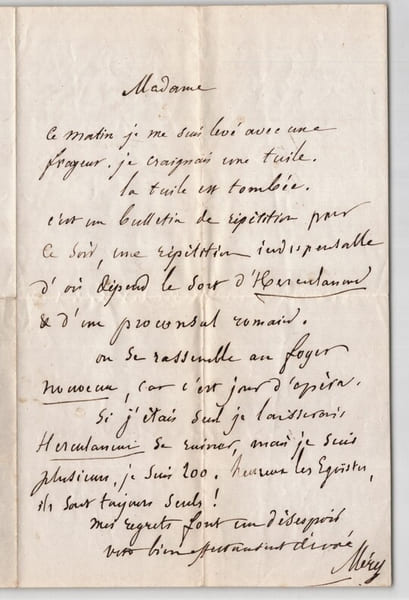 Madame
ce matin je me suis levé avec une
frayeur. je craignais une tuile.
la tuile est tombée.
c'est un bulletin de répétition pour
ce soir, une répétition indispensable
d'où dépend le sort d'Herculanum
& d'un proconsul romain.
on se rassemble au foyer
nouveau, car c'est jour d'opéra.
Si j'étais seul je laisserais
Herculanum se ruiner, mais je suis
plusieurs, je suis 200. heureux les Egoïstes,
ils sont toujours seuls !
mes regrets font un désespoir
votre bien affectueusement dévoué
Méry